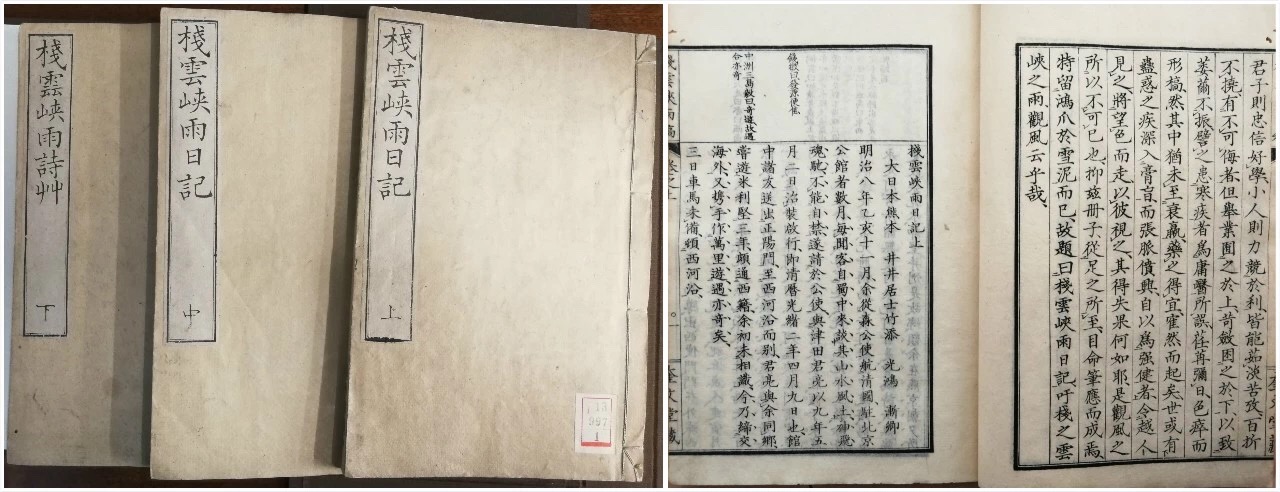 棧雲峽雨日記
上
棧雲峽雨日記
中
棧雲峽雨詩艸
下
997
1
君子則忠信好學小人則力競於利、皆能茹淡苦孜、百折
不撓、有不可侮者、但舉業囿之於上、苛斂困之於下、以致
萎薾不振、譬之患寒疾者爲庸醫所誤、荏苒彌日、色瘁而
形槁、然其中猶未至衰羸、藥之得宜、霍然而起矣、世或有
蠱惑之疾深入膏肓而張脈僨興、自以爲强健者、令越人
見之、將望色而走、以彼視之、其得失果何如耶、是觀風之
所以不可已也、抑茲册子、從足之所至、目命筆應而成焉、
特留鴻爪於雪泥而已、故題曰棧雲峽雨日記、吁棧之雲
峽之雨、觀風云乎哉、
錢徵曰發源便佳
中洲三島毅曰奇遊故遇
合亦奇
棧雲峽雨日記上
大日本熊本 井井居士竹添 光鴻 漸卿
明治八年乙亥十一月余從森公使航清國駐北京
公館者數月每聞客自蜀中來談其山水風土神飛
魂馳不能自禁遂請於公使與津田君亮以九年五
月二日治裝啟行即清曆光緒二年四月九日也館
中諸友送出正陽門至西河沿而別君亮與余同鄉、
嘗遊米利堅三年頗通西籍余初未相識今乃締交
海外又携手作萬里遊遇亦奇矣
三日車馬未備頓西河沿
棧雲峽雨稿
奎文堂藏